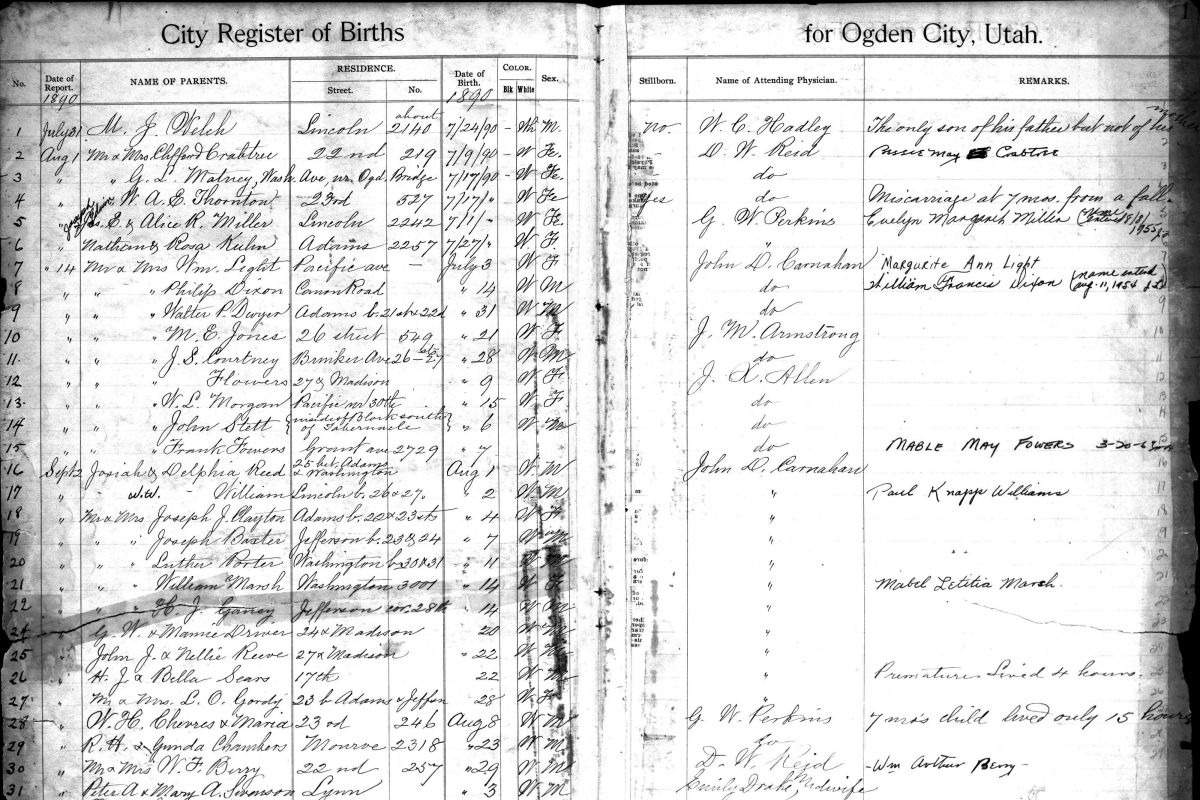 City Register of Births for Ogden City, Utah.
No. Date of Report. NAME OF PARENTS. RESIDENCE. Street. No. Date of Birth. COLOR. Blk White Sex. Stillborn. Name of Attending Physician. REMARKS.
1890 1890
1 July 31 M. J. Welch Lincoln about 2140 7/24/90 – Wh M. no. W. C. Hadley The only son of his father but not of his
2 Aug 1 Mr & Mrs. Clifford Crabtree 22nd 219 7/9/90 – W Fe. D. W. Reid May Crabtree
3 " " G. L. Matney, Wash. Ave nr. Ogd. Bridge 7/17/90 – W Fe. do
4 " " W. A. E. Thornton 23rd 527 7/17/" W Fe yes do Miscarriage at 7 mos. from a fall.
5 " S. & Alice R. Miller Lincoln 2242 7/1/" W Fe. G. W. Perkins Evelyn Margareth Miller 1955
6 " & Rosa Kuhn Adams 2257 7/27/" W F. "
7 " 14 Mr & Mrs Wm. Light Pacific ave – July 3 W F. John D. Carnahan Margurite Ann Light
8 " " " Philip Dixon Canon Road " 14 W M do William Francis Dixon (name entered Aug. 11, 1954
9 " " " Walter P. Dwyer Adams b. 21st & 22d " 31 W M do
10 " " " M. E. Jones 26 street 549 " 21 W F. J. M. Armstrong
11 " " " J. S. Courtney Ave 26–27 " 28 W M do
12 " " " Flowers 27 & Madison " 9 W F. J. X. Allen
13 " " " W. L. Morgan Pacific nr 30th " 15 W F do
14 " " " John Stett inside of Block south of Tabernacle " 6 W do
15 " " " Frank Fowers Grant ave 2729 " 7 do MABLE MAY FOWERS 3-20-6
16 Sept 2 Josiah & Delphia Reed 25 bet. Adams & Washington Aug 1 W M John D. Carnahan
17 " W.W. William Lincoln b. 26 & 27. " 2 W M. " Paul Knapp Williams
18 " Mr & Mrs Joseph J. Clayton Adams b. 22 & 23 sts " 4 W F. "
19 " " " Joseph Baxter Jefferson b. 23 & 24 " 7 W M "
20 " " " Luther Porter Washington b 30 & 31 " 11 W M "
21 " " " William Marsh Washington 3001 " 14 W F " Mabel Letitia Marsh.
22 " " " H. J. Garvey Jefferson cor. 28th " 14 W M "
24 " G. W. & Mamie Driver 24 & Madison 20 W M "
25 " John J. & Nellie Reeve 27 & Madison " 22 W "
26 " H. J. & Bella Sears 17th 22 W M " Premature Lived 4 hours.
27 " Mr & Mrs. L. O. Gordy 23 b Adams & Jeffson 28 W F "
28 " W. H. Chevres & Maria 23rd 246 Aug 8 W M G W. Perkins 7 mo's child lived only 15 hours
29 " R. H. & Gunda Chambers Monroe 2318 " 23 W M. do
30 " Mr & Mrs W. F. Berry 22nd 257 " 29 W M D. W. Reid -Wm Arthur Berry-
31 " Peter A & Mary A. Swonson Lynn " 3 W M Emily Drake, Midwife